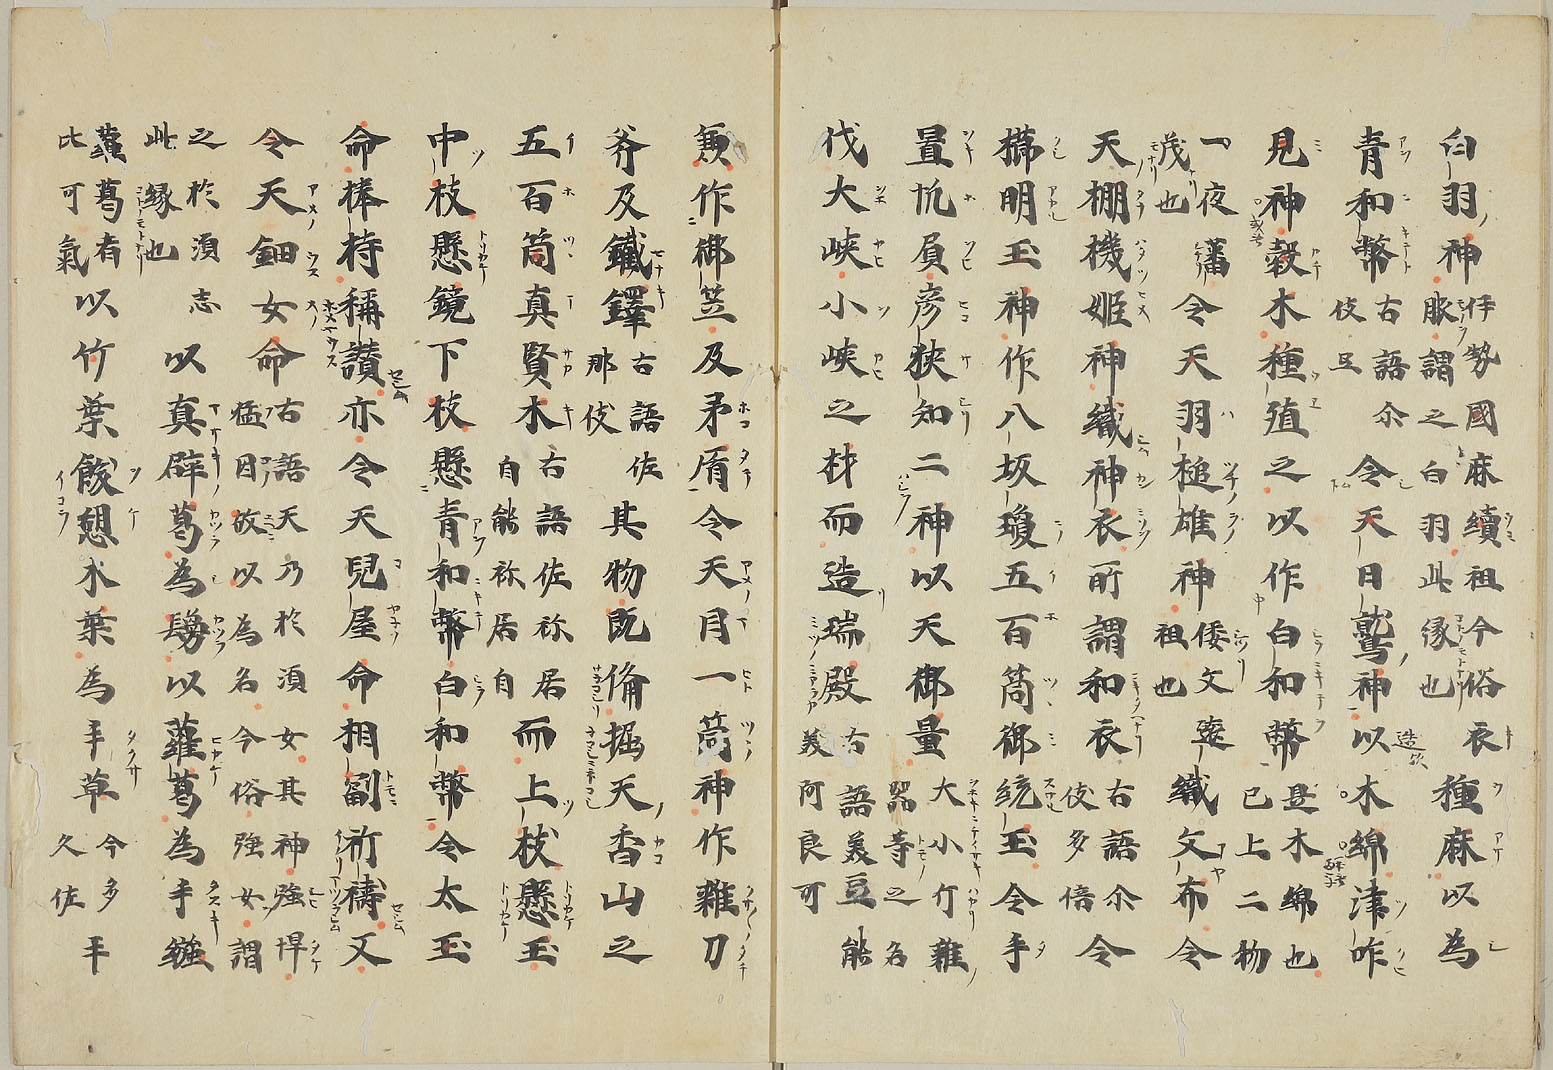 白羽神伊勢國麻續祖今俗衣服謂之白羽此緣也種麻以為
青和幣古語尒伎弖令天日鷲神以木綿津咋
見神穀木種殖之以作白和幣是木綿也已上二物
一夜蕃茂也令天羽槌雄神倭文遠祖也織文布令
天棚機姬神織神衣所謂和衣古語尒伎多倍令
櫛明玉神作八坂瓊五百箇御統玉令手
置帆負彥狹知二神以天御量大小斤雜器等之名
伐大峽小峽之材而造瑞殿古語美豆能美阿良可
兼作御笠及矛盾令天目一箇神作雜刀
斧及鐵鐸古語佐那伎其物既備掘天香山之
五百箇真賢木古語佐祢居自能祢居自而上枝懸玉
中枝懸鏡下枝懸青和幣白和幣令太玉
命捧持稱讚亦令天兒屋命相副祈禱又
令天鈿女命古語天乃於湏女其神強悍猛固故以為名今俗強女謂
之於湏志此緣也以真辟葛為鬘以蘿葛為手繦
蘿葛者比可氣以竹葉飫憩木葉為手草今多久佐